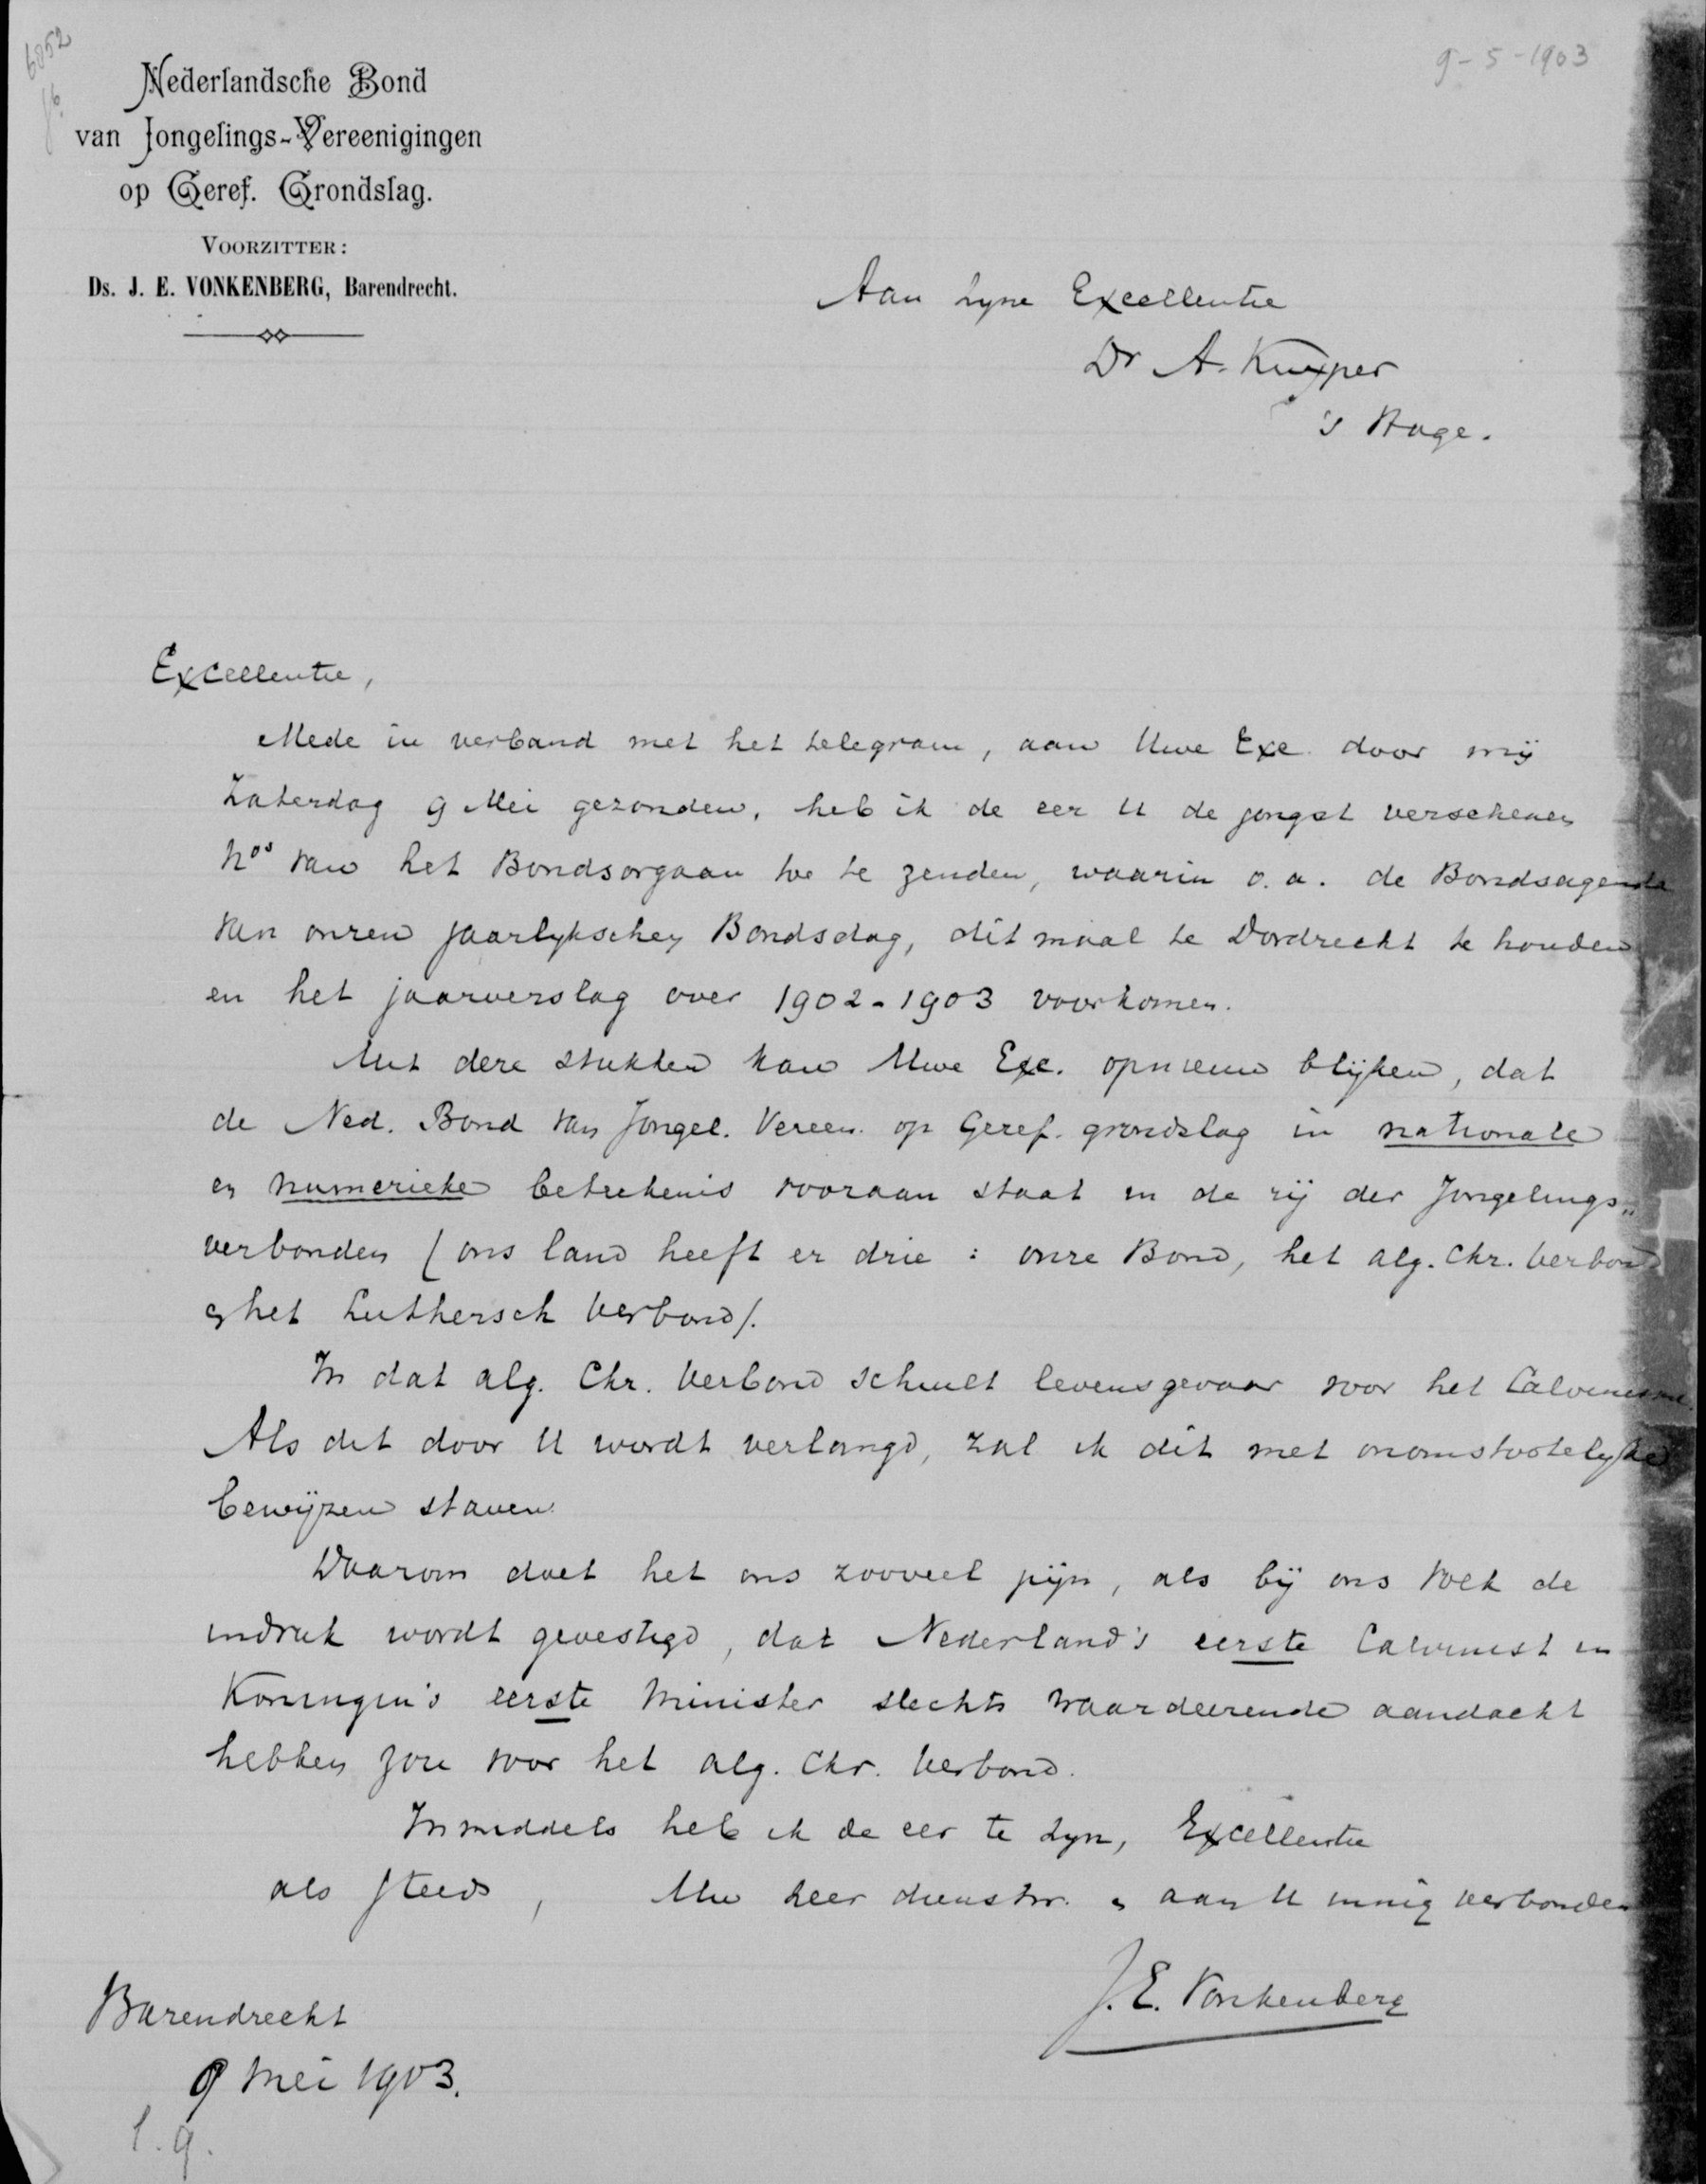 6852
9-5-1903
Nederlandsche Bond
van Jongelings-Vereenigingen
op Geref. Grondslag.
VOORZITTER:
Ds. J. E. VONKENBERG, Barendrecht.
Aan Zyne Excellentie
Dr A. Kuyper
's Hage.
Excellentie,
Mede in verband met het telegram, aan Uwe Exc. door mij
Zaterdag 9 Mei gezonden, heb ik de eer U de jongst verschenen
Nos van het Bondsorgaan toe te zenden, waarin o.a. de Bondsagenda
van onzen jaarlykschen Bondsdag, ditmaal te Dordrecht te houden
en het jaarverslag over 1902-1903 voorkomen.
Uit deze stukken kan Uwe Exc. opnieuw blijken, dat
de Ned. Bond van Jongel. Vereen. op Geref. grondslag in nationale
en numerieke beteekenis vooraan staat in de rij der Jongelings„
verbonden (ons land heeft er drie: onze Bond, het alg. Chr. Verbond
en het Luthersch Verbond/.
In dat alg. Chr. Verbond schuilt levensgevaar voor het Calvinisme.
Als dit door U wordt verlangd, zal ik dit met onomstootelyke
bewijzen staven.
Daarom doet het ons zooveel pijn, als bij ons volk de
indruk wordt gevestigd, dat Nederland's eerste Calvinist en
Koningin's eerste Minister slechts waardeerende aandacht
hebben zou voor het alg. Chr. Verbond.
Inmiddels heb ik de eer te zyn, Excellentie
als steeds, Uw zeer dienstw. en aan U innig verbonden
J. E. Vonkenberg
Barendrecht
9 Mei 1903.